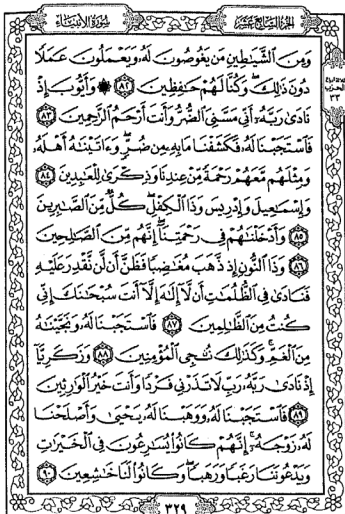 الجزء السابع عشر
سورة الأنبياء
وَمِنَ ٱلشَّيَٰطِينِ مَن يَغُوصُونَ لَهُۥ وَيَعْمَلُونَ عَمَلًا
دُونَ ذَٰلِكَ ۖ وَكُنَّا لَهُمْ حَٰفِظِينَ ٨٢ ۞ وَأَيُّوبَ إِذْ
نَادَىٰ رَبَّهُۥٓ أَنِّي مَسَّنِيَ ٱلضُّرُّ وَأَنتَ أَرْحَمُ ٱلرَّٰحِمِينَ ٨٣
فَٱسْتَجَبْنَا لَهُۥ فَكَشَفْنَا مَا بِهِۦ مِن ضُرٍّ ۖ وَءَاتَيْنَٰهُ أَهْلَهُۥ
وَمِثْلَهُم مَّعَهُمْ رَحْمَةً مِّنْ عِندِنَا وَذِكْرَىٰ لِلْعَٰبِدِينَ ٨٤
وَإِسْمَٰعِيلَ وَإِدْرِيسَ وَذَا ٱلْكِفْلِ ۖ كُلٌّ مِّنَ ٱلصَّٰبِرِينَ
٨٥ وَأَدْخَلْنَٰهُمْ فِي رَحْمَتِنَآ ۖ إِنَّهُم مِّنَ ٱلصَّٰلِحِينَ
٨٦ وَذَا ٱلنُّونِ إِذ ذَّهَبَ مُغَٰضِبًا فَظَنَّ أَن لَّن نَّقْدِرَ عَلَيْهِ
فَنَادَىٰ فِي ٱلظُّلُمَٰتِ أَن لَّآ إِلَٰهَ إِلَّآ أَنتَ سُبْحَٰنَكَ إِنِّي
كُنتُ مِنَ ٱلظَّٰلِمِينَ ٨٧ فَٱسْتَجَبْنَا لَهُۥ وَنَجَّيْنَٰهُ
مِنَ ٱلْغَمِّ ۚ وَكَذَٰلِكَ نُـۨجِي ٱلْمُؤْمِنِينَ ٨٨ وَزَكَرِيَّآ
إِذْ نَادَىٰ رَبَّهُۥ رَبِّ لَا تَذَرْنِي فَرْدًا وَأَنتَ خَيْرُ ٱلْوَٰرِثِينَ
٨٩ فَٱسْتَجَبْنَا لَهُۥ وَوَهَبْنَا لَهُۥ يَحْيَىٰ وَأَصْلَحْنَا
لَهُۥ زَوْجَهُۥٓ ۚ إِنَّهُمْ كَانُوا۟ يُسَٰرِعُونَ فِي ٱلْخَيْرَٰتِ
وَيَدْعُونَنَا رَغَبًا وَرَهَبًا ۖ وَكَانُوا۟ لَنَا خَٰشِعِينَ ٩٠
٣٢٩
الحزب
٣٣